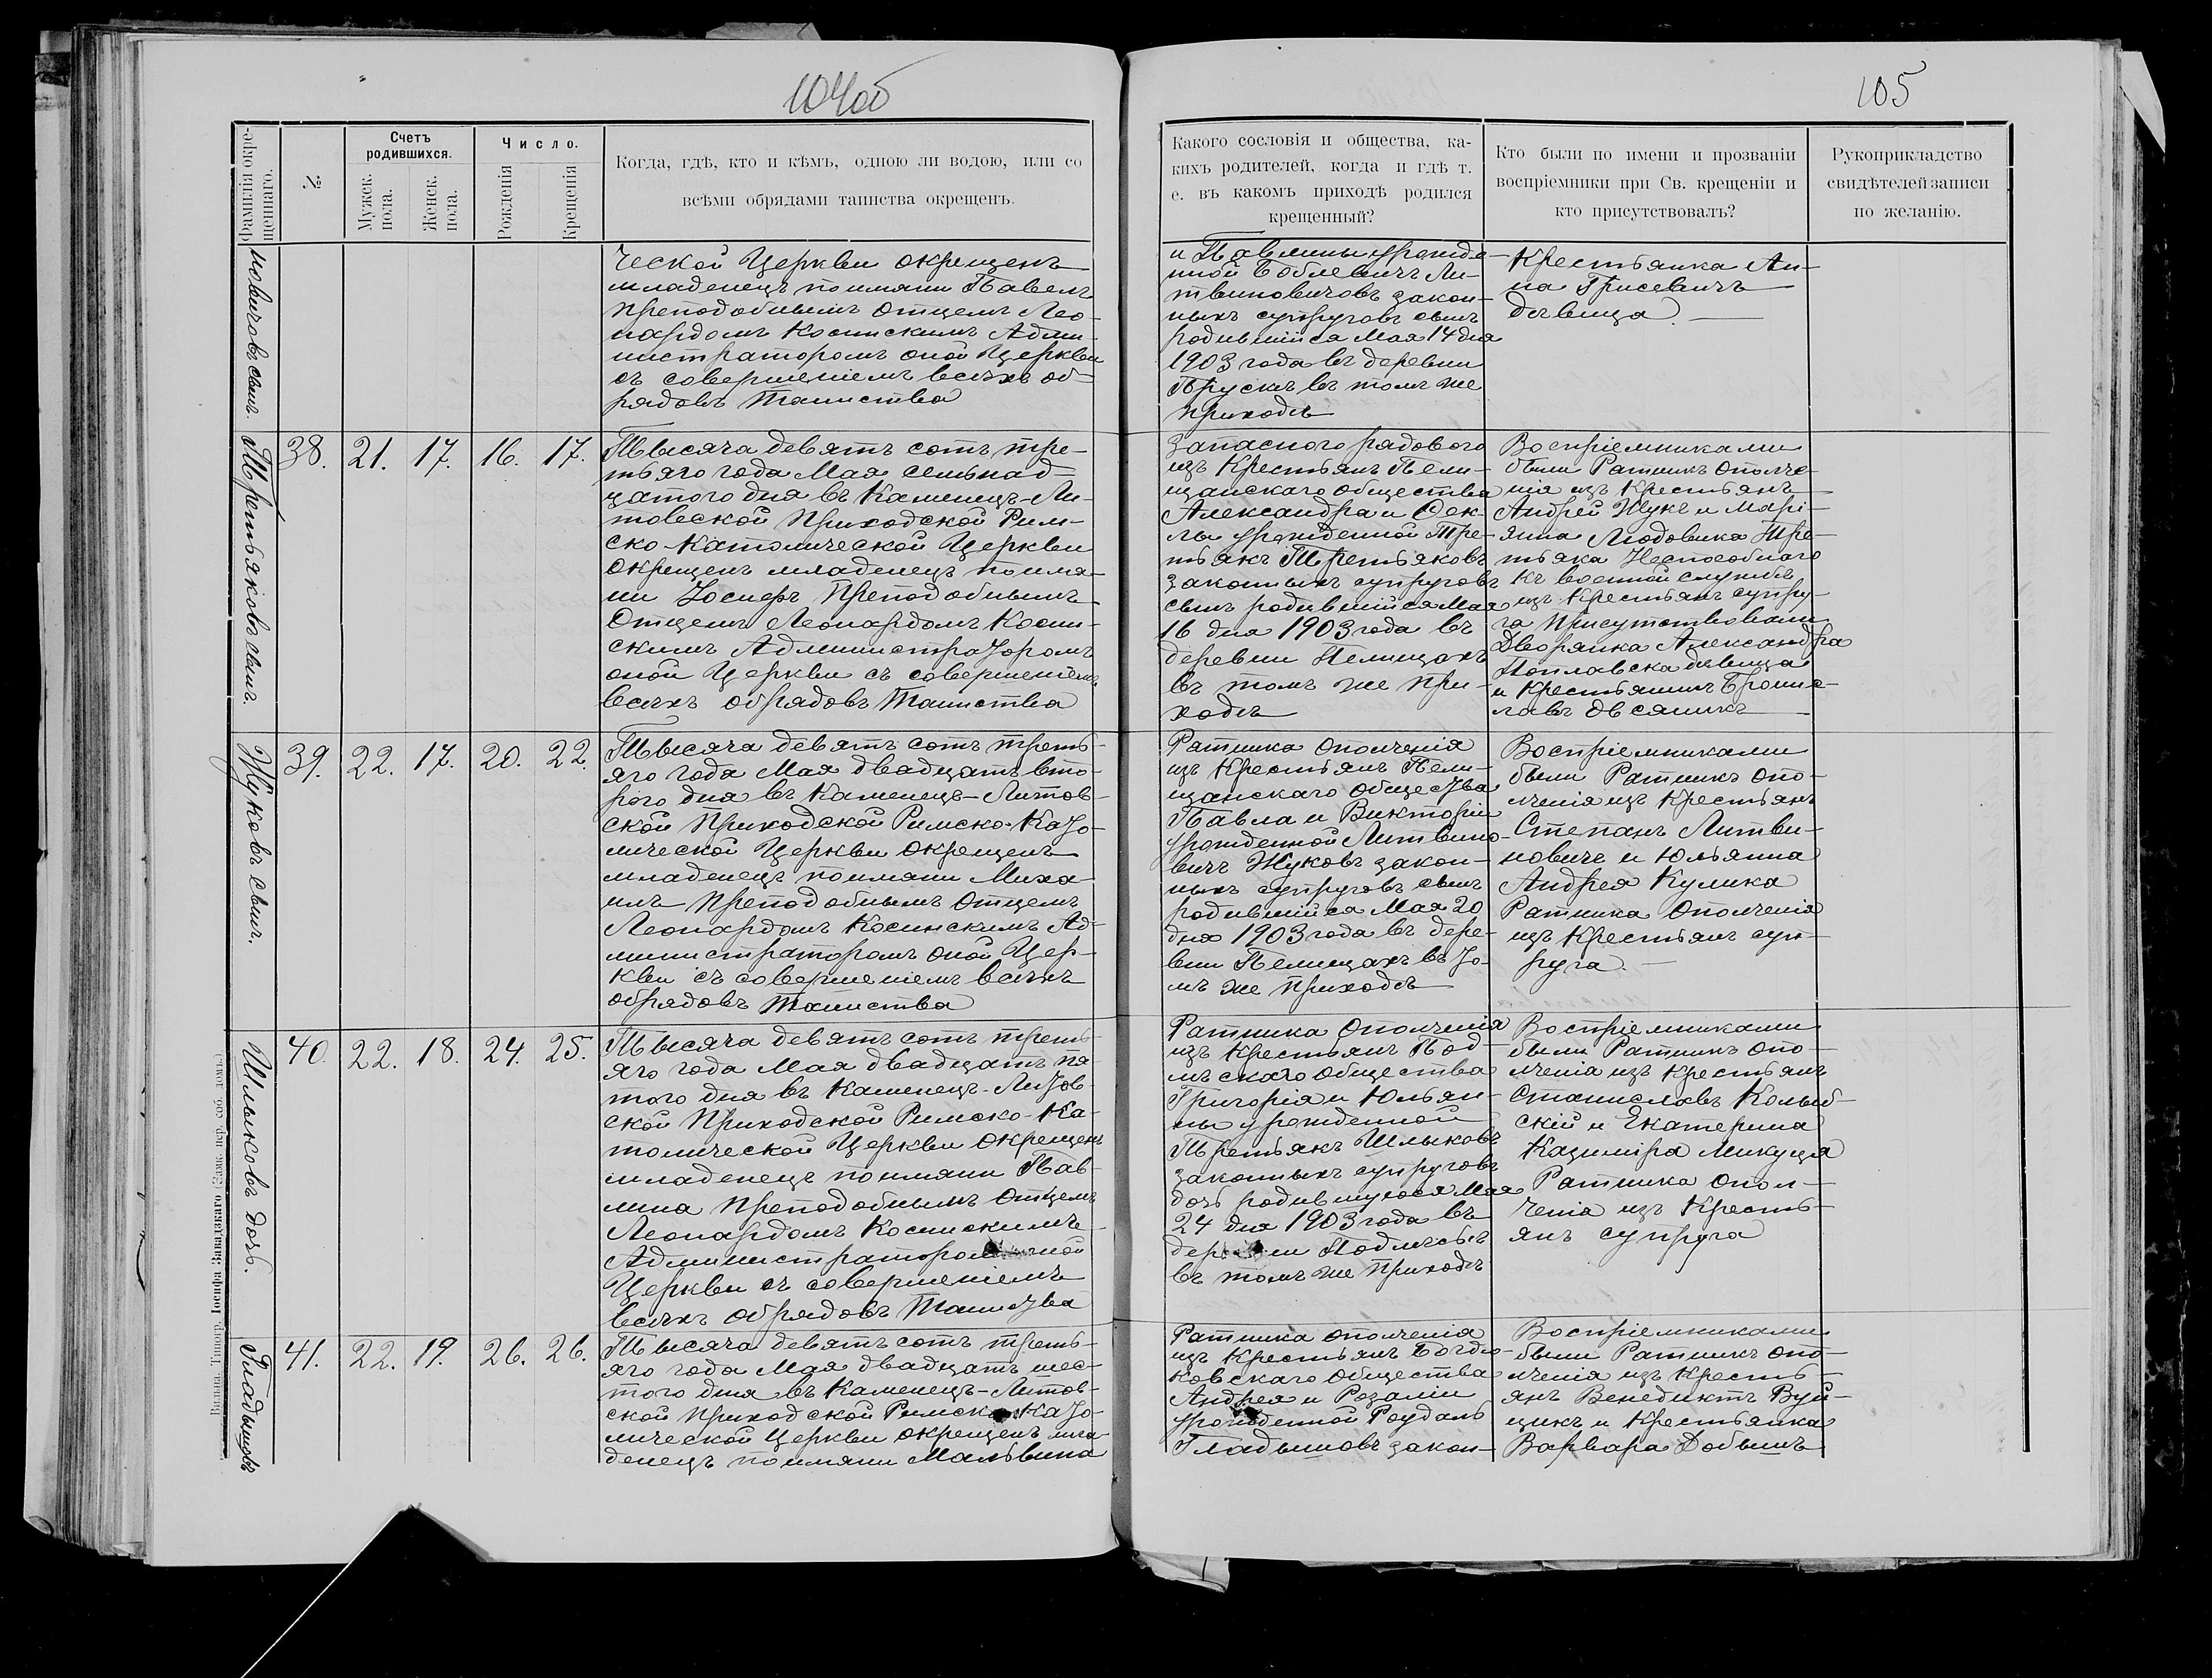 104об
105
Фамилия новорожденнаго.
№
Счетъ родившихся.
Мужск. пола.
Женск. пола.
Число.
Рожденія
Крещенія
Когда, гдѣ, кто и кѣмъ, одною ли водою, или со
всѣми обрядами таинства окрещенъ.
Какого сословія и общества, ка-
кихъ родителей, когда и гдѣ т.
е. въ какомъ приходѣ родился
крещенный?
Кто были по имени и прозваніи
воспріемники при Св. крещеніи и
кто присутствовалъ?
Рукоприкладство
свидѣтелей записи
по желанію.
новичовъ сынъ.
ческой Церкви окрещенъ
младенецъ поимяни Павелъ
Преподобнымъ Отцемъ Лео-
нардомъ Косинскимъ Адми-
нистраторомъ оной Церкви
съ совершеніемъ всѣхъ об-
рядовъ Таинства
и Павлины урожде-
нной Боблевичъ Ли-
твиновичовъ закон-
ныхъ супруговъ сынъ
родившійся Мая 14 дня
1903 года въ деревни
Прускѣ въ томъ же
приходѣ
Крестьянка Ан-
на Грисевичъ
дѣвица.
Третьяковъ сынъ.
38. 21. 17. 16. 17.
Тысяча девять сотъ тре-
тьяго года Мая семьнад
цатого дня въ Каменецъ-Ли-
товеской Приходской Рим-
ско-Католической Церкви
окрещенъ младенецъ поимя-
ни Іосифъ Преподобнымъ
Отцемъ Леонардомъ Косин-
скимъ Администраторомъ
оной Церкви съ совершеніемъ
всѣхъ обрядовъ Таинства
Запасного рядового
изъ Крестьянъ Пели-
щанскаго общества
Александра и Фек-
лы урожденной Тре-
тьякъ Третьяковъ
законныхъ супруговъ
сынъ родившійся Мая
16 дня 1903 года въ
деревни Пелищахъ
въ томъ же при-
ходѣ
Воспріемниками
были Ратникъ Ополче-
нія изъ Крестьянъ
Андрей Жукъ и Марі-
янна Людовика Тре-
тьяка Неспособнаго
къ военной службѣ
изъ Крестьянъ супру-
га Присутствовали
Дворянка Александра
Поплавска дѣвица
и Крестьянинъ Бронис-
лавъ Овсяникъ
Жуковъ сынъ.
39. 22. 17. 20. 22.
Тысяча девять сотъ треть-
яго года Мая двадцать вто-
рого дня въ Каменецъ-Литов-
ской Приходской Римско-Като-
лической Церкви окрещенъ
младенецъ поимяни Миха-
илъ Преподобнымъ Отцемъ
Леонардомъ Косинскимъ Ад-
министраторомъ оной Цер-
кви съ совершеніемъ всѣхъ
обрядовъ Таинства
Ратника Ополченія
изъ Крестьянъ Пели-
щанскаго общества
Павла и Викторіи
урожденной Литвино-
вичъ Жуковъ закон-
ныхъ супруговъ сынъ
родившійся Мая 20
дня 1903 года въ дере-
вни Пелищахъ въ то-
мъ же приходѣ
Воспріемниками
были Ратникъ Опо-
лченія изъ Крестьянъ
Степанъ Литви-
новичъ и Юльянна
Андрея Кулика
Ратника Ополченія
изъ Крестьянъ суп-
руга.
Шлыковъ дочь.
40. 22. 18. 24. 25.
Тысяча девять сотъ треть-
яго года Мая двадцать пя-
того дня въ Каменецъ-Литов-
ской Приходской Римско-Ка-
толической Церкви окрещенъ
младенецъ поимяни Пав-
лина Преподобнымъ Отцемъ
Леонардомъ Косинскимъ
Администраторомъ оной
Церкви съ совершеніемъ
всѣхъ обрядовъ Таинства
Ратника Ополченія
изъ Крестьянъ Под-
лѣскаго общества
Григорія и Юльян-
ны урожденной
Третьякъ Шлыковъ
законныхъ супруговъ
дочь родившуюся Мая
24 дня 1903 года въ
деревни Подлѣсьѣ
въ томъ же приходѣ
Воспріемниками
были Ратникъ Опо-
лченія изъ Крестьянъ
Станиславъ Колыб-
скій и Екатерина
Казиміра Микуця
Ратника Опол-
ченія изъ Кресть-
янъ супруга
Гладышовъ
41. 22. 19. 26. 26.
Тысяча девять сотъ треть-
яго года Мая двадцать шес-
того дня въ Каменецъ-Литов-
ской Приходской Римско-Като-
лической Церкви окрещенъ мла-
денецъ поимяни Мальвина
Ратника ополченія
изъ Крестьянъ Богдю-
ковскаго общества
Андрея и Розаліи
урожденной Роудаль
Гладышовъ закон-
Воспріемниками
были Ратникъ Опо-
лченія изъ Кресть-
янъ Венедиктъ Вуй-
цикъ и Крестьянка
Варвара Добышъ
Вильна. Типогр. Іосифа Завадзкаго (Замк. пер. соб. домъ.)